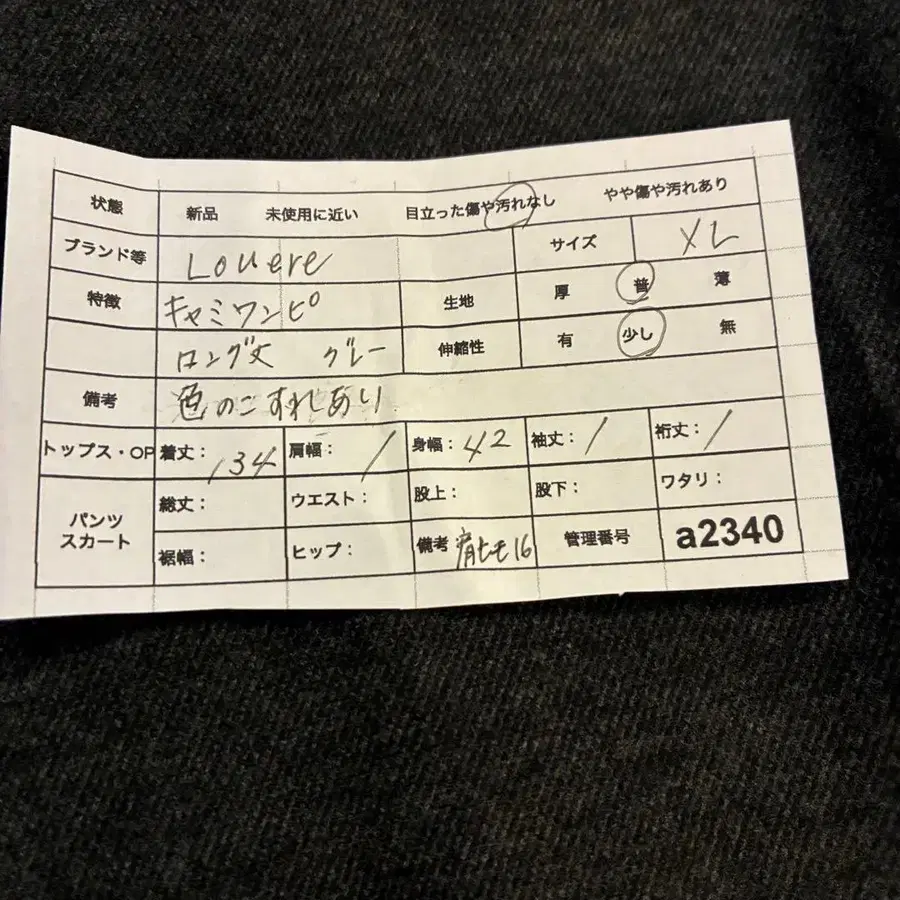 状態 新品 未使用に近い 目立った傷や汚れなし やや傷や汚れあり
ブランド等 Louere サイズ XL
特徴 キャミワンピ 生地 厚 普 薄
ロング丈 グレー 伸縮性 有 少し 無
備考 色のこすれあり
トップス・OP 着丈： 134 肩幅： / 身幅： 42 袖丈： / 裄丈： /
パンツ スカート 総丈： ウエスト： 股上： 股下： ワタリ：
裾幅： ヒップ： 備考 肩ヒモ16 管理番号 a2340